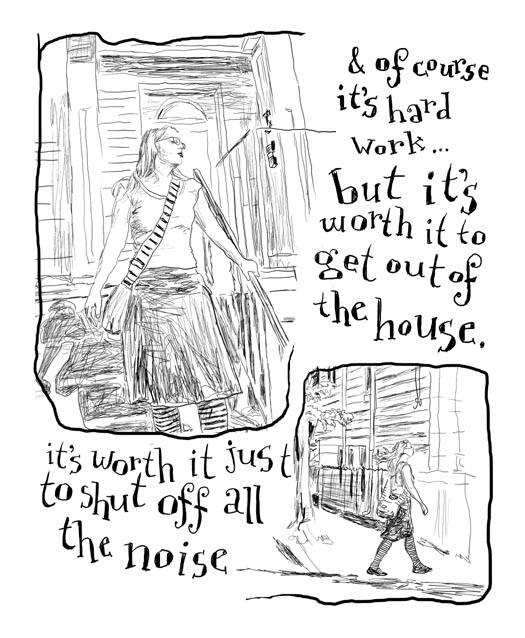 & of course
it's hard
work...
but it's
worth it to
get out of
the house.
it's worth it just
to shut off all
the noise